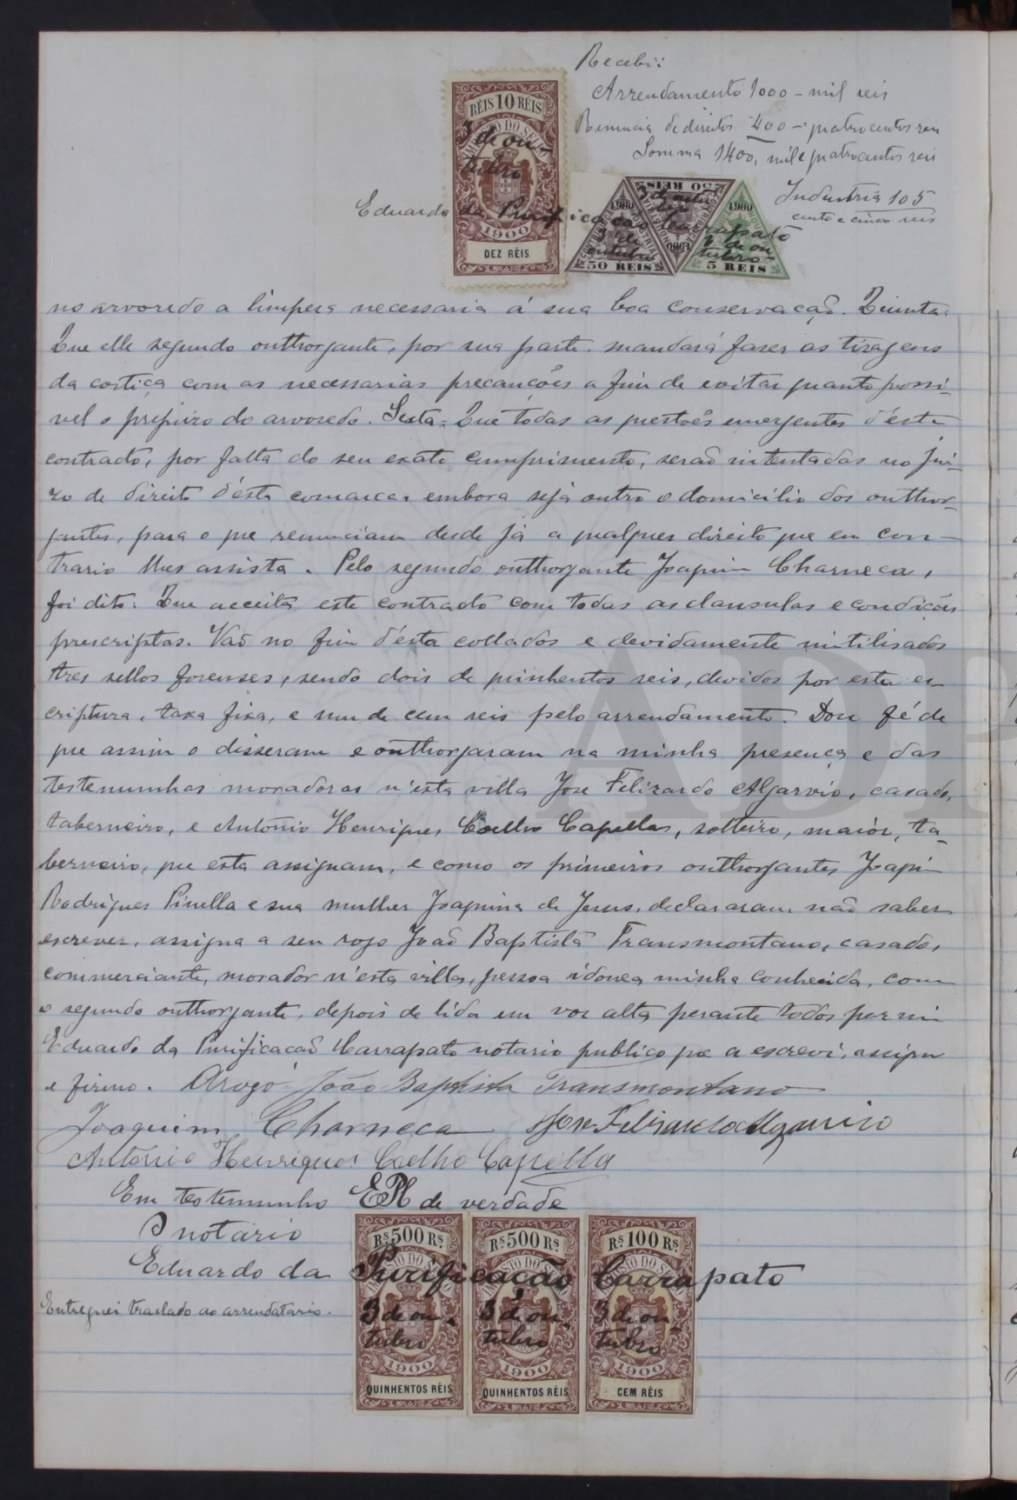 Recebi:
Arrendamento 1000 - mil reis
Renuncia de direitos 400 - quatrocentos reis
Somma 1400, mil e quatrocentos reis
Industria 105
cento e cinco reis
RÉIS 10 RÉIS
3 de ou-
tubro
Eduardo da Purificação Carrapato
1900
DEZ RÉIS
50 REIS
50 REIS
5 REIS
no arvoredo a limpeza necessaria á sua boa conservação. Quinta=
Que elle segundo outhorgante, por sua parte mandará fazer as tiragens
da cortiça com as necessarias precauções a fim de evitar quanto possi-
vel o prejuizo do arvoredo. Sexta= Que todas as questões emergentes d'este
contracto, por falta do seu exato cumprimento, serão intentadas no jui-
zo de direito d'esta comarca, embora seja outro o domicilio dos outhor-
gantes, para o que renunciam desde já a qualquer direito que em con-
trario lhes assista. Pelo segundo outhorgante Joaquim Charneca,
foi dito: Que acceita este contracto com todas as clausulas e condições
prescriptas. Vão no fim d'esta collados e devidamente inutilisados
tres sellos forenses, sendo dois de quinhentos reis, devidos por esta es-
criptura, taxa fixa, e um de cem reis pelo arrendamento. Dou fé de
que assim o disseram e outhorgaram na minha presença e das
testemunhas moradoras n'esta villa Jose Felizardo Algarvio, casado,
taberneiro, e Antonio Henriques Coelho Capella, solteiro, maior, ta-
berneiro, que esta assignam, e como os primeiros outhorgantes Joaquim
Rodrigues Pinella e sua mulher Joaquina de Jesus, declararam não saber
escrever, assigna a seu rogo João Baptista Transmontano, casado,
commerciante, morador n'esta villa, pessoa idonea minha conhecida, com
o segundo outhorgante, depois de lida em voz alta perante todos por mim
Eduardo da Purificação Carrapato notario publico que a escrevi, assigno
e firmo. Arogo João Baptista Transmontano
Joaquim Charneca Jose Felizardo Algarvio
Antonio Henriques Coelho Capella
Em testemunho EPC de verdade
O notario
Eduardo da Purificação Carrapato
Entreguei traslado ao arrendatario.
Rs 500 Rs. Rs 500 Rs. Rs 100 Rs.
3 de ou- 3 de ou- 3 de ou-
tubro tubro tubro
1900 1900 1900
QUINHENTOS RÉIS QUINHENTOS RÉIS CEM RÉIS